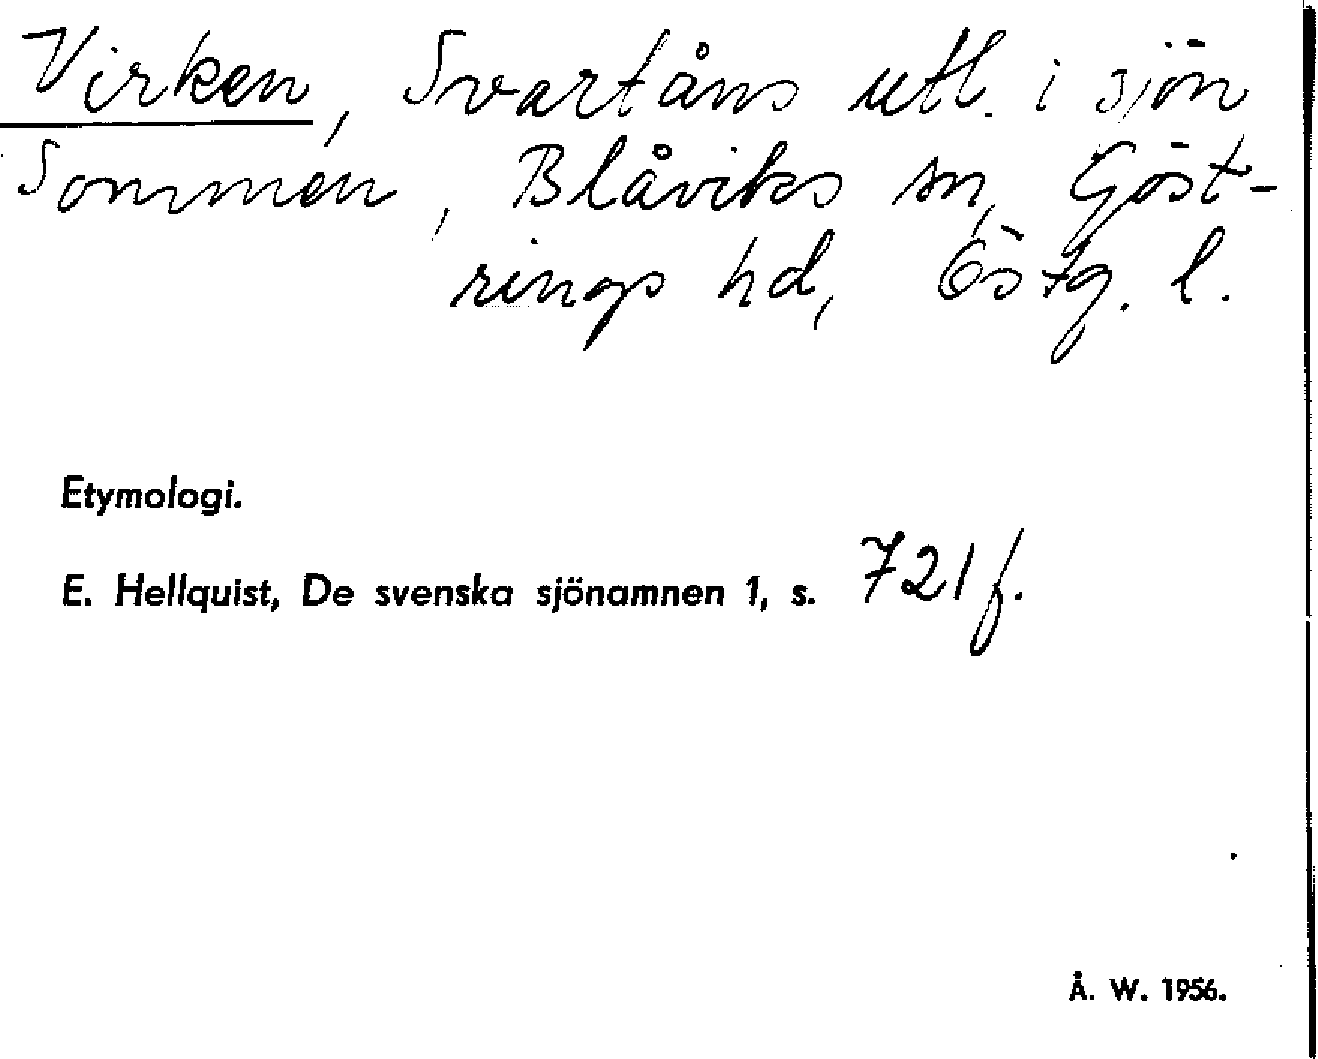 Virken, Svartåns utl. i sjön
Sommen, Blåviks sn, Göst-
rings hd, Östg. l.
Etymologi.
E. Hellquist, De svenska sjönamnen 1, s. 721 f.
Å. W. 1956.